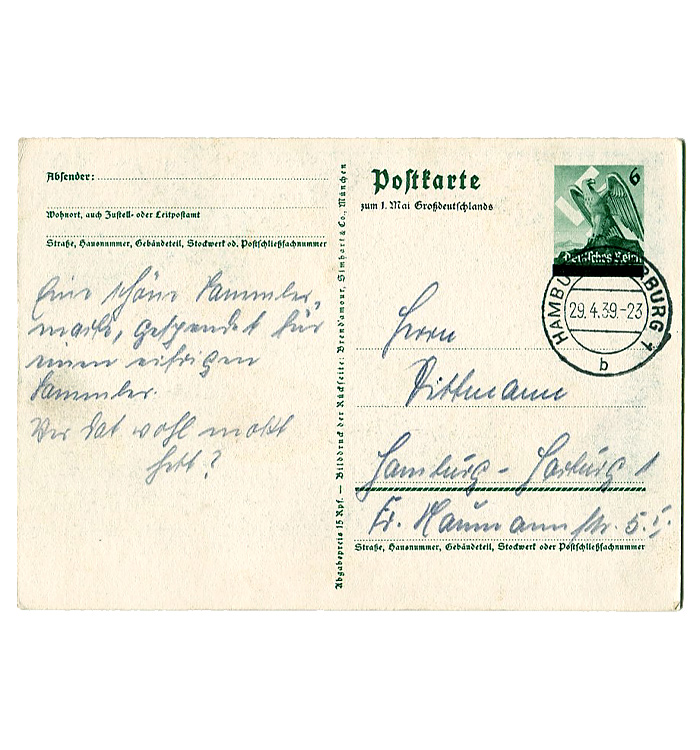 Absender:
Wohnort, auch Zustell- oder Leitpostamt
Straße, Hausnummer, Gebäudeteil, Stockwerk od. Postschließfachnummer
Eine schöne Sammler-
marke, gespendet für
einen eifrigen
Sammler.
Wer dat wohl makt
hett?
Abgabepreis 15 Rpf. — Bilddruck der Rückseite: Brend'amour, Simhart & Co., München
Postkarte
zum 1. Mai Großdeutschlands
6
Deutsches Reich
HAMBURG-HARBURG 1
29.4.39.-23
b
Herrn
Dittmann
Hamburg-Harburg 1
Fr. Naumannstr. 5. I.
Straße, Hausnummer, Gebäudeteil, Stockwerk oder Postschließfachnummer